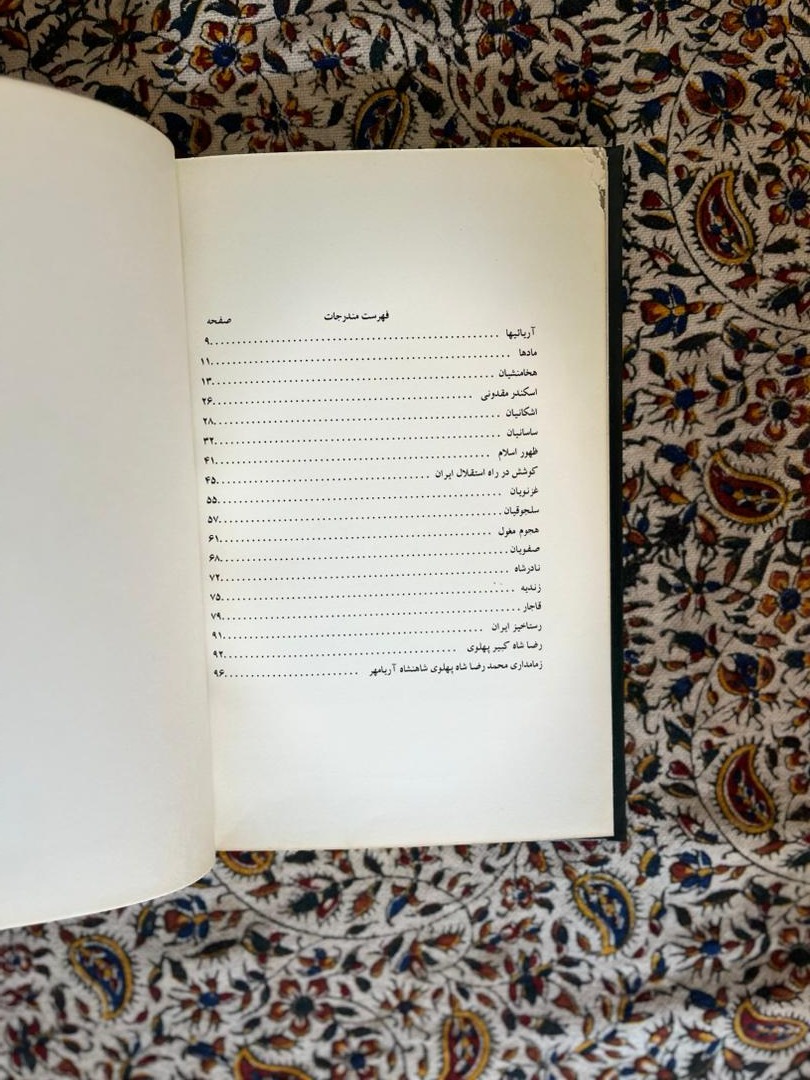 فهرست مندرجات صفحه
آریائیها ........ ۹
مادها ........ ۱۱
هخامنشیان ........ ۱۳
اسکندر مقدونی ........ ۲۶
اشکانیان ........ ۲۸
ساسانیان ........ ۳۲
ظهور اسلام ........ ۴۱
کوشش در راه استقلال ایران ........ ۴۵
غزنویان ........ ۵۵
سلجوقیان ........ ۵۷
هجوم مغول ........ ۶۱
صفویان ........ ۶۸
نادرشاه ........ ۷۲
زندیه ........ ۷۵
قاجار ........ ۷۹
رستاخیز ایران ........ ۹۱
رضا شاه کبیر پهلوی ........ ۹۲
زمامداری محمد رضا شاه پهلوی شاهنشاه آریامهر ........ ۹۶